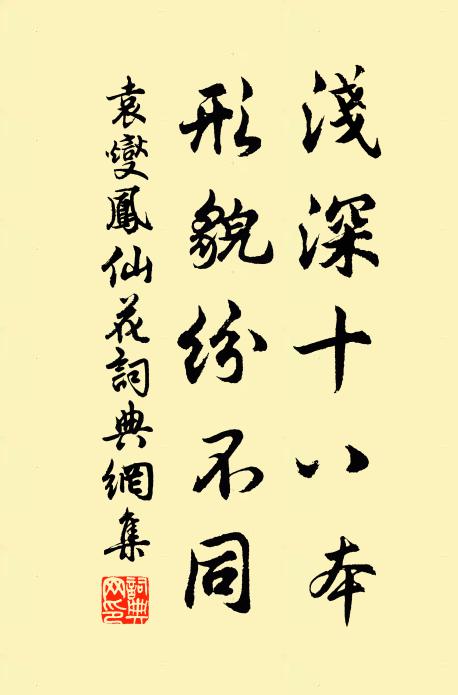 淺深十八本
形貌紛不同
袁燮鳳仙花詞典網集
詞典網印